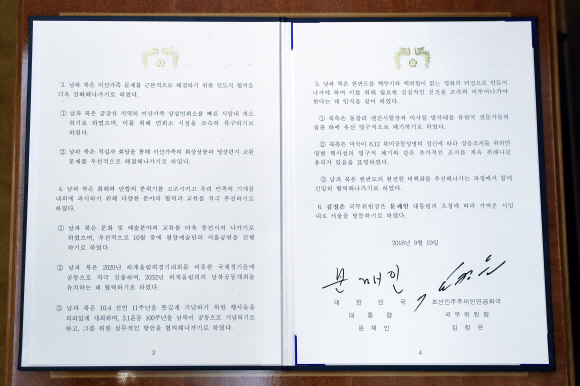 3. 남과 북은 이산가족 문제를 근본적으로 해결하기 위한 인도적 협력을
더욱 강화해나가기로 하였다.
① 남과 북은 금강산 지역의 이산가족 상설면회소를 빠른 시일내 개소
하기로 하였으며, 이를 위해 면회소 시설을 조속히 복구하기로
하였다.
② 남과 북은 적십자 회담을 통해 이산가족의 화상상봉과 영상편지 교환
문제를 우선적으로 해결해나가기로 하였다.
4. 남과 북은 화해와 단합의 분위기를 고조시키고 우리 민족의 기개를
대외에 과시하기 위해 다양한 분야의 협력과 교류를 적극 추진하기로
하였다.
① 남과 북은 문화 및 예술분야의 교류를 더욱 증진시켜 나가기로
하였으며, 우선적으로 10월 중에 평양예술단의 서울공연을 진행
하기로 하였다.
② 남과 북은 2020년 하계올림픽경기대회를 비롯한 국제경기들에
공동으로 적극 진출하며, 2032년 하계올림픽의 남북공동개최를
유치하는 데 협력하기로 하였다.
③ 남과 북은 10.4 선언 11주년을 뜻깊게 기념하기 위한 행사들을
의의있게 개최하며, 3.1운동 100주년을 남북이 공동으로 기념하기로
하고, 그를 위한 실무적인 방안을 협의해나가기로 하였다.
3
5. 남과 북은 한반도를 핵무기와 핵위협이 없는 평화의 터전으로 만들어
나가야 하며 이를 위해 필요한 실질적인 진전을 조속히 이루어나가야
한다는 데 인식을 같이 하였다.
① 북측은 동창리 엔진시험장과 미사일 발사대를 유관국 전문가들의
참관 하에 우선 영구적으로 폐기하기로 하였다.
② 북측은 미국이 6.12 북미공동성명의 정신에 따라 상응조치를 취하면
영변 핵시설의 영구적 폐기와 같은 추가적인 조치를 계속 취해나갈
용의가 있음을 표명하였다.
③ 남과 북은 한반도의 완전한 비핵화를 추진해나가는 과정에서 함께
긴밀히 협력해나가기로 하였다.
6. 김정은 국무위원장은 문재인 대통령의 초청에 따라 가까운 시일
내로 서울을 방문하기로 하였다.
2018년 9월 19일
문재인
대한민국 조선민주주의인민공화국
대통령 국무위원장
문재인 김정은
4